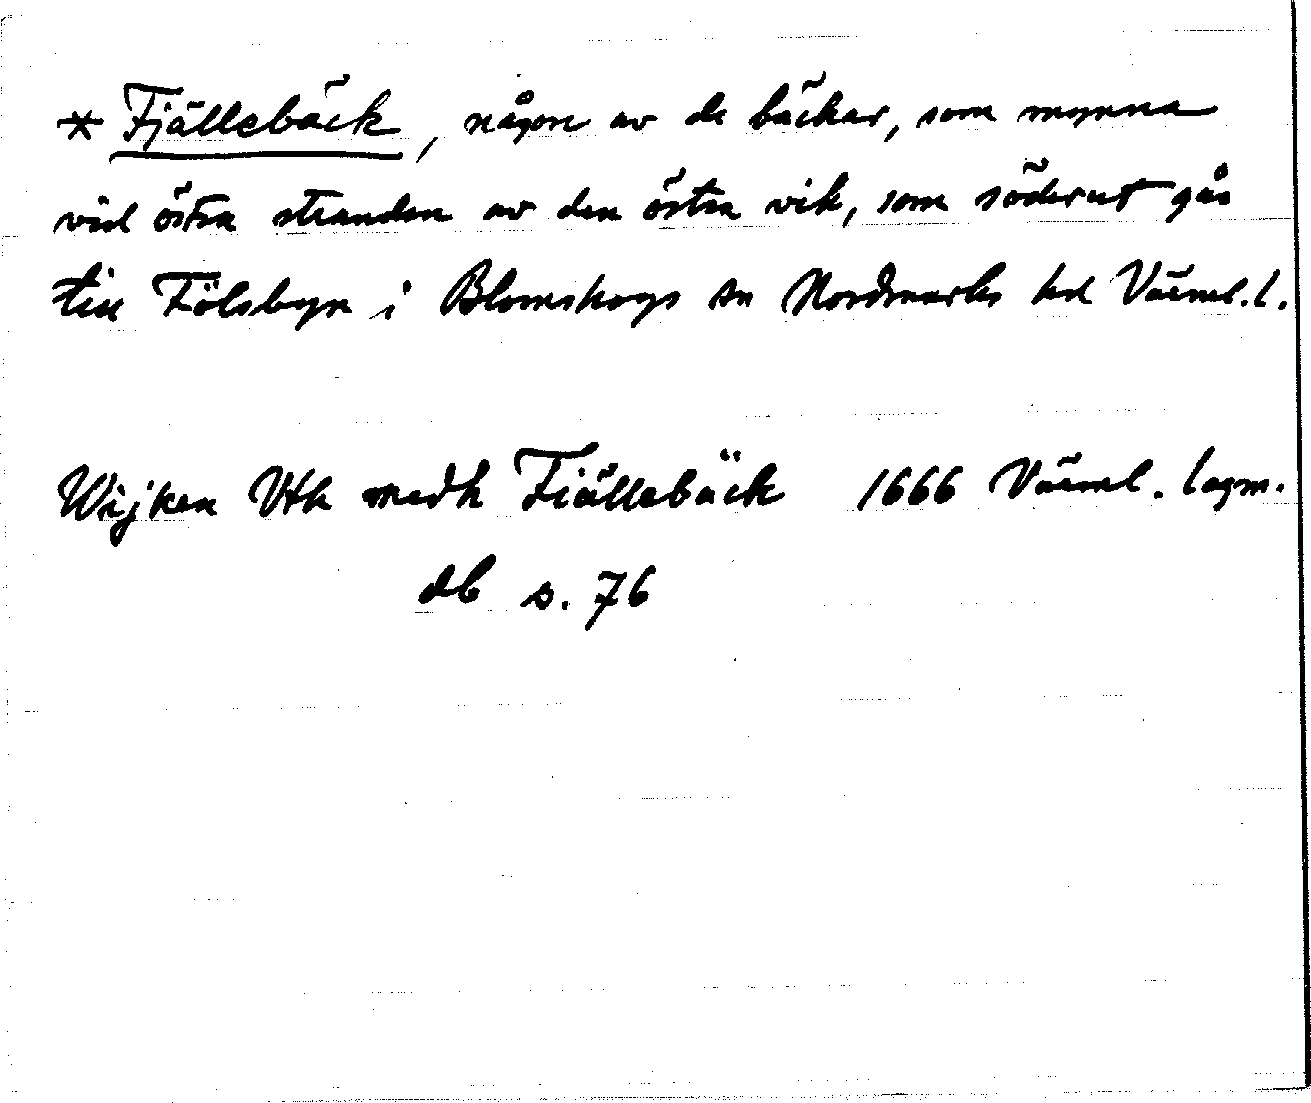 * Fjällebäck, någon av de bäckar, som mynna
vid östra stranden av den östra vik, som söderut går
till Fölsbyn i Blomskogs sn Nordmarks hd Värml. l.
Wijken Vtk medh Fiällebäck 1666 Värml. lagm.
db s. 76